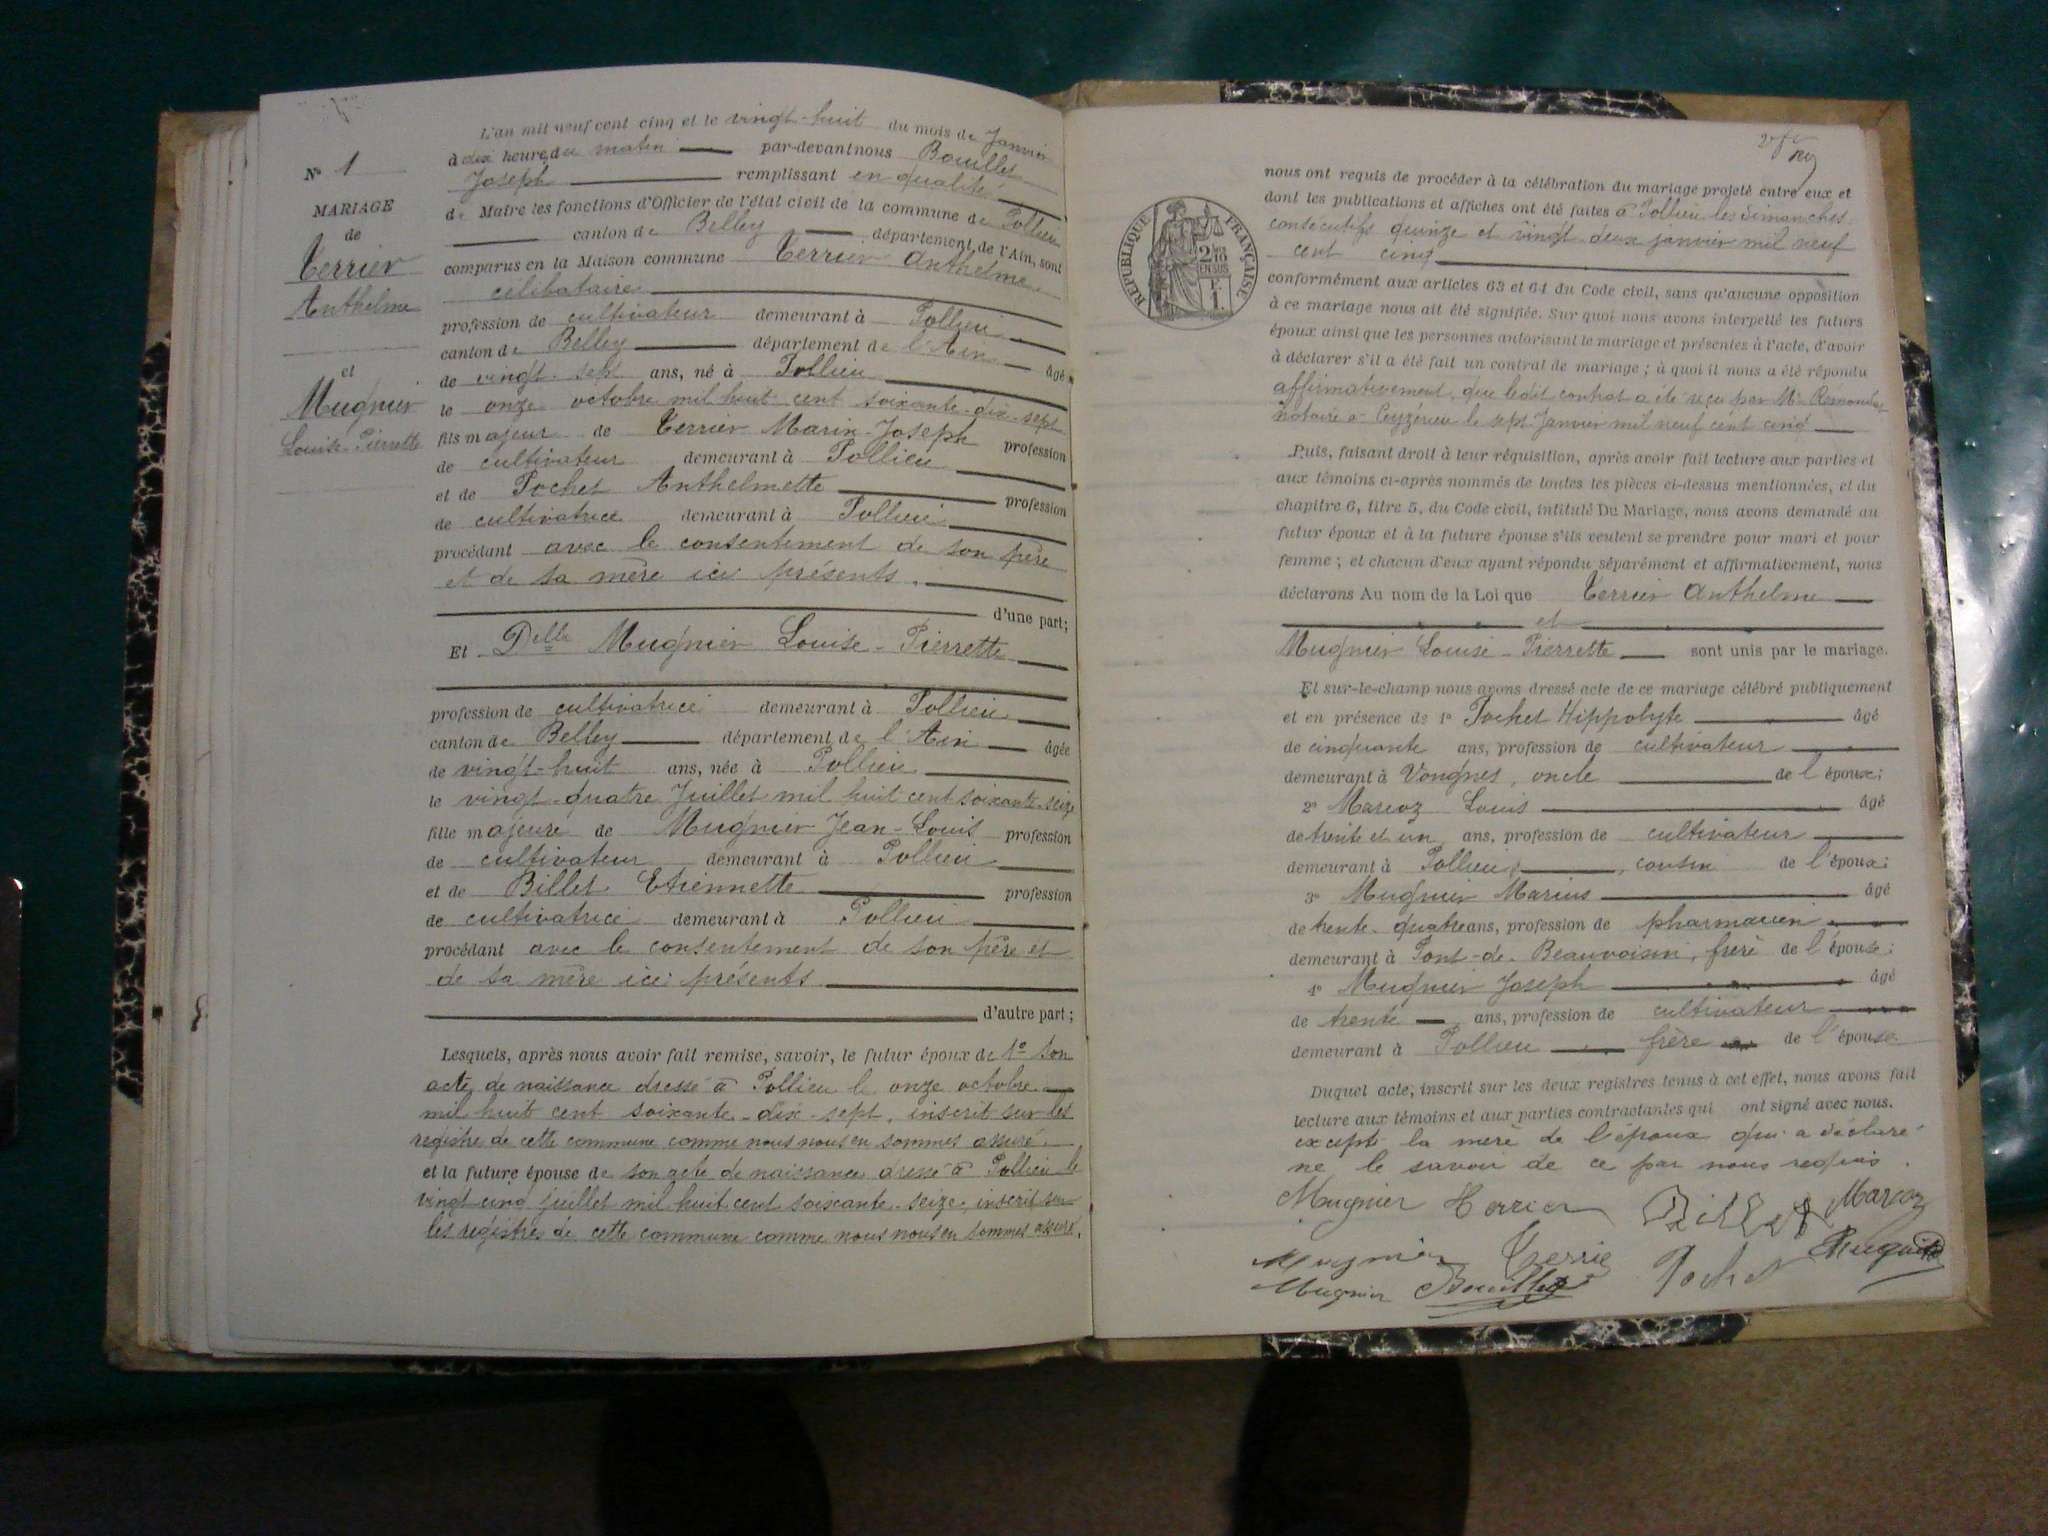 N° 1
MARIAGE
de
Terrier
Anthelme
et
Mugnier
Louise-Pierrette
L'an mil neuf cent cinq et le vingt-huit du mois de Janvier
à dix heures du matin par-devant nous Bouillet
Joseph remplissant en qualité
de Maire les fonctions d'Officier de l'état civil de la commune de Pollieu
canton de Belley département de l'Ain, sont
comparus en la Maison commune Terrier Anthelme
célibataire
profession de cultivateur demeurant à Pollieu
canton de Belley département de l'Ain âgé
de vingt-sept ans, né à Pollieu
le onze octobre mil huit cent soixante-dix-sept
fils majeur de Terrier Marin-Joseph profession
de cultivateur demeurant à Pollieu
et de Pochet Anthelmette profession
de cultivatrice demeurant à Pollieu
procédant avec le consentement de son père
et de sa mère ici présents.
d'une part;
Et Delle Mugnier Louise-Pierrette
profession de cultivatrice demeurant à Pollieu
canton de Belley département de l'Ain âgée
de vingt-huit ans, née à Pollieu
le vingt-quatre Juillet mil huit cent soixante-seize
fille majeure de Mugnier Jean-Louis profession
de cultivateur demeurant à Pollieu
et de Billet Etiennette profession
de cultivatrice demeurant à Pollieu
procédant avec le consentement de son père et
de sa mère ici présents
d'autre part;
Lesquels, après nous avoir fait remise, savoir, le futur époux de 1° son
acte de naissance dressé à Pollieu le onze octobre
mil huit cent soixante-dix-sept, inscrit sur les
registre de cette commune comme nous nous en sommes assuré.
et la future épouse de son acte de naissance dressé à Pollieu le
vingt cinq juillet mil huit cent soixante-seize, inscrit sur
les registres de cette commune comme nous nous en sommes assuré.
RÉPUBLIQUE FRANÇAISE
2/10
EN SUS
nous ont requis de procéder à la célébration du mariage projeté entre eux et
dont les publications et affiches ont été faites à Pollieu les dimanches
consécutifs quinze et vingt deux janvier mil neuf
cent cinq
conformément aux articles 63 et 64 du Code civil, sans qu'aucune opposition
à ce mariage nous ait été signifiée. Sur quoi nous avons interpellé les futurs
époux ainsi que les personnes autorisant le mariage et présentes à l'acte, d'avoir
à déclarer s'il a été fait un contrat de mariage; à quoi il nous a été répondu
affirmativement, que ledit contrat a été reçu par Me
notaire à Ceyzérieu le sept Janvier mil neuf cent cinq
Puis, faisant droit à leur réquisition, après avoir fait lecture aux parties et
aux témoins ci-après nommés de toutes les pièces ci-dessus mentionnées, et du
chapitre 6, titre 5, du Code civil, intitulé Du Mariage, nous avons demandé au
futur époux et à la future épouse s'ils veulent se prendre pour mari et pour
femme; et chacun d'eux ayant répondu séparément et affirmativement, nous
déclarons Au nom de la Loi que Terrier Anthelme
et
Mugnier Louise-Pierrette sont unis par le mariage.
Et sur-le-champ nous avons dressé acte de ce mariage célébré publiquement
et en présence de 1° Pochet Hippolyte âgé
de cinquante ans, profession de cultivateur
demeurant à Vongnes, oncle de l'époux;
2° Marcoz Louis âgé
de trente et un ans, profession de cultivateur
demeurant à Pollieu, cousin de l'époux;
3° Mugnier Marius âgé
de trente-quatre ans, profession de pharmacien
demeurant à Pont-de-Beauvoisin, frère de l'épouse;
4° Mugnier Joseph âgé
de trente ans, profession de cultivateur
demeurant à Pollieu frère de l'épouse.
Duquel acte, inscrit sur les deux registres tenus à cet effet, nous avons fait
lecture aux témoins et aux parties contractantes qui ont signé avec nous.
excepté la mère de l'époux qui a déclaré
ne le savoir de ce par nous requis.
Mugnier Terrier Billet Marcoz
Mugnier Terrier Pochet Mugnier
Mugnier Bouillet